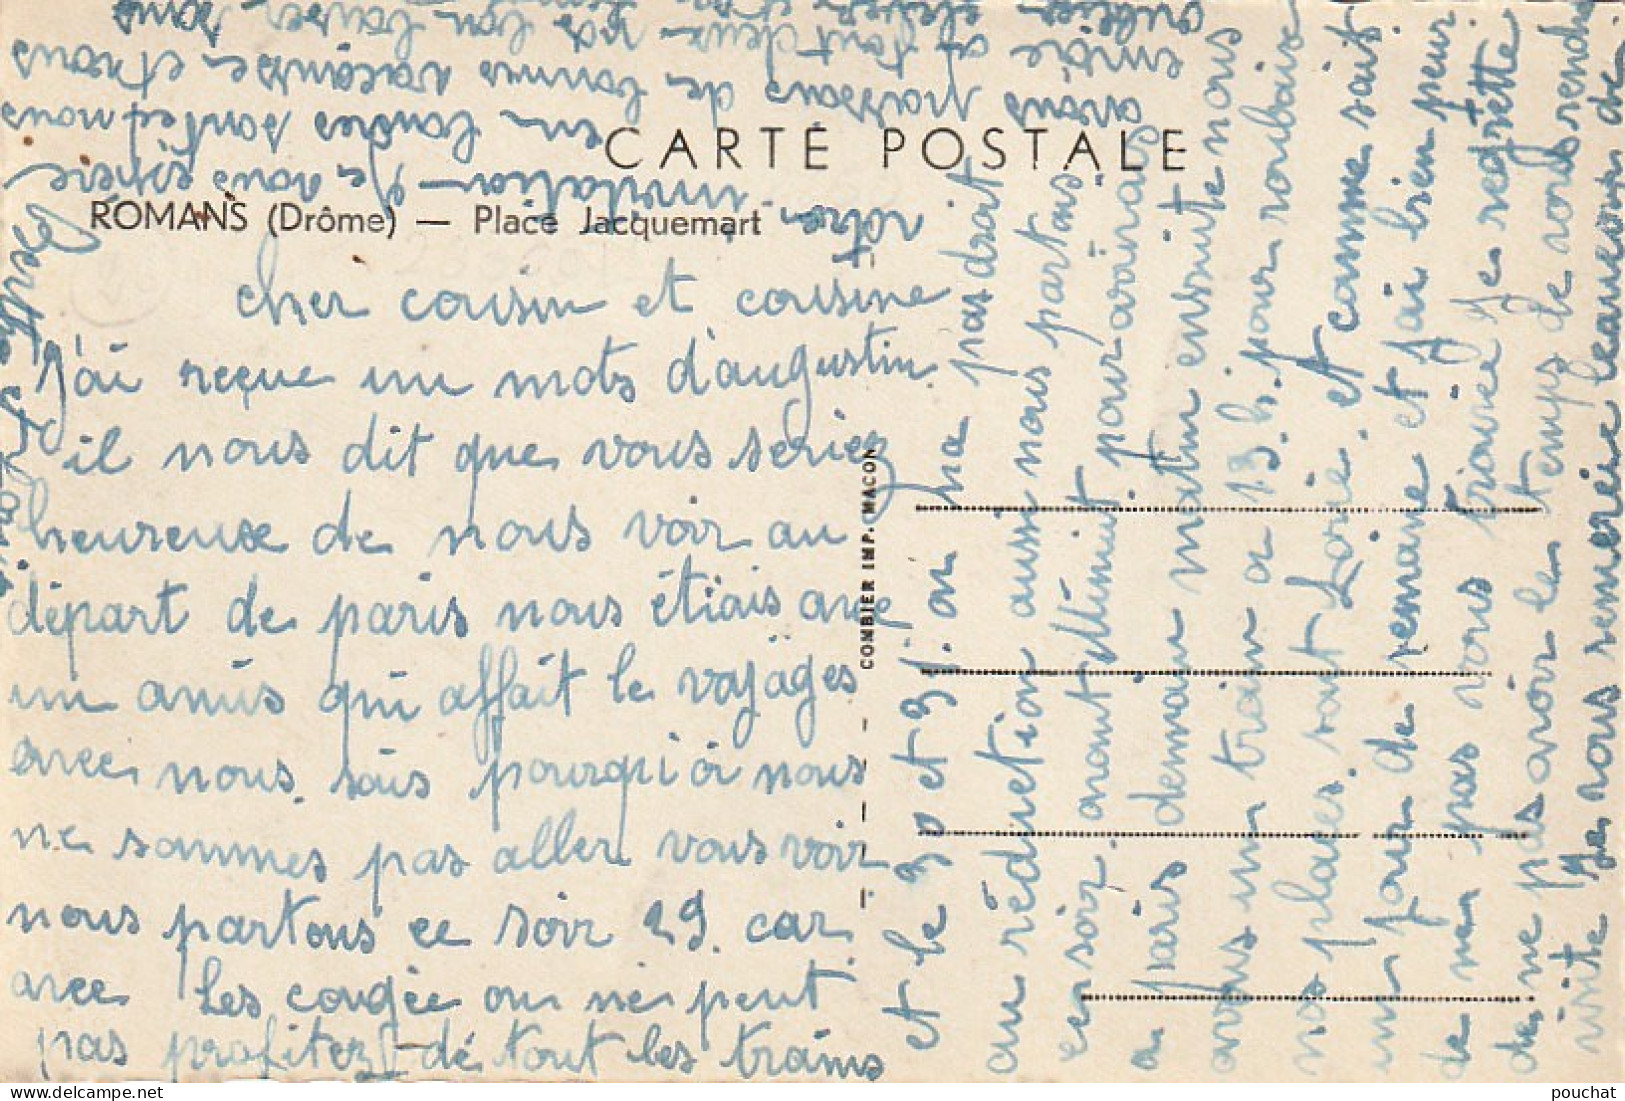 CARTE POSTALE
ROMANS (Drôme) — Place Jacquemart
COMBIER IMP. MACON
cher cousin et cousine
J'ai reçue un mots d'augustin
il nous dit que vous seriez
heureuse de nous voir au
départ de paris nous étiais avec
un amis qui affait le voyages
avec nous sais pourqui oi nous
ne sommes pas aller vous voir
nous partons ce soir 29. car
avec les congée on ne peut
pas profitez de tout les trains
et le 30 et 31. on ha pas droit
au réduction aussi nous partons
ce soir pour
a paris demain matin ensuite nous
avons un train a 13 h. pour roubaix
nos places sont et comme sait
un jour de semaine et j'ai bien peur
de ne pas vous trouvé Je regrette
de ne pas avoir le temps de vous rendre
visite Je vous remercie beaucoup de
votre invitation Je vous espère
en bonnes santée nous
avons passons de bonnes vacanses et vous
envoie a tout deux nos bon baiser